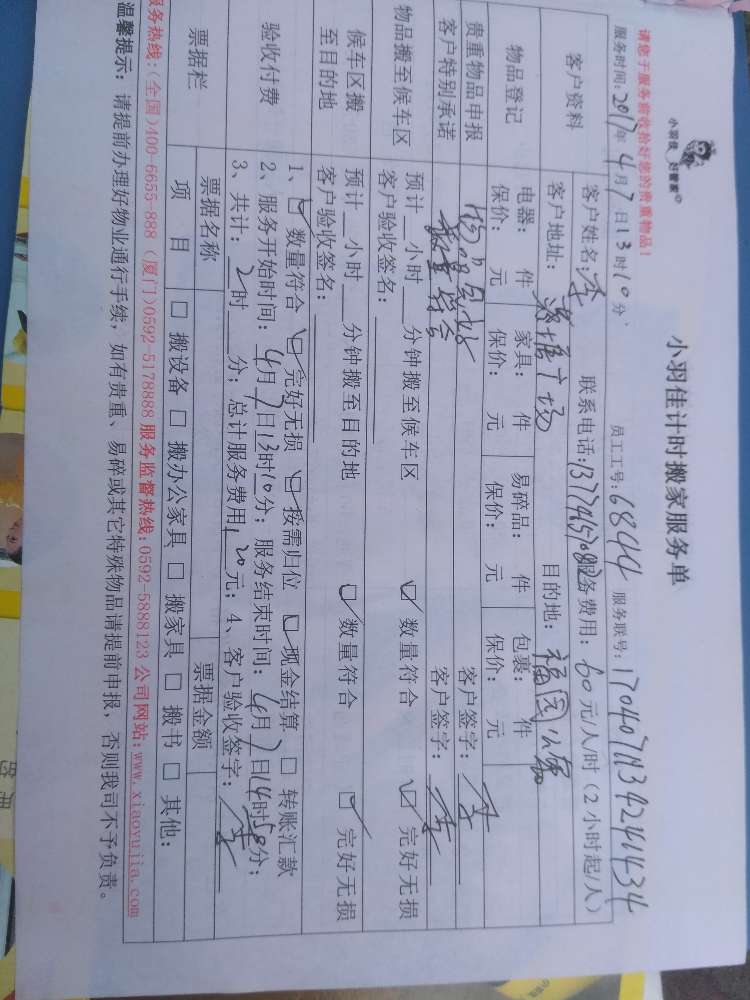 小羽佳 好管家
小羽佳计时搬家服务单
请您于服务前收拾好您的贵重物品!
服务时间:2017年4月7日13时10分 员工工号:6844 服务联号:
客户资料
客户姓名:李 联系电话: 服务费用:60元/人/时(2小时起/人)
客户地址: 广场 目的地:福园
物品登记
电器: 件 家具: 件 易碎品: 件 包裹: 件
保价: 元 保价: 元 保价: 元 保价: 元
贵重物品申报 客户签字:李
客户特别承诺 数量 客户签字:李
物品搬至候车区
预计__小时__分钟搬至候车区 ☑数量符合 ☑完好无损
客户验收签名:
候车区搬至目的地
预计__小时__分钟搬至目的地 ☑数量符合 ☑完好无损
客户验收签名:
验收付费
1、☑数量符合 ☑完好无损 ☑按需归位 ☑现金结算 □转账汇款
2、服务开始时间:4月7日13时10分;服务结束时间:4月7日14时50分;
3、共计:2时__分;总计服务费用120元;4、客户验收签字:李
票据栏
票据名称 票据金额
项目 □搬设备 □搬办公家具 □搬家具 □搬书 □其他:
服务热线:(全国)400-6655-888 (厦门)0592-5178888 服务监督热线:0592-5888123 公司网站:www.xiaoyujia.com
温馨提示:请提前办理好物业通行手续,如有贵重、易碎或其它特殊物品请提前申报,否则我司不予负责。